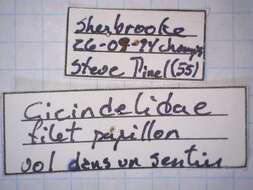 Sherbrooke
26-09-94 champs
Steve Pinell (55)
Cicindelidae
filet papillon
vol dans un sentier